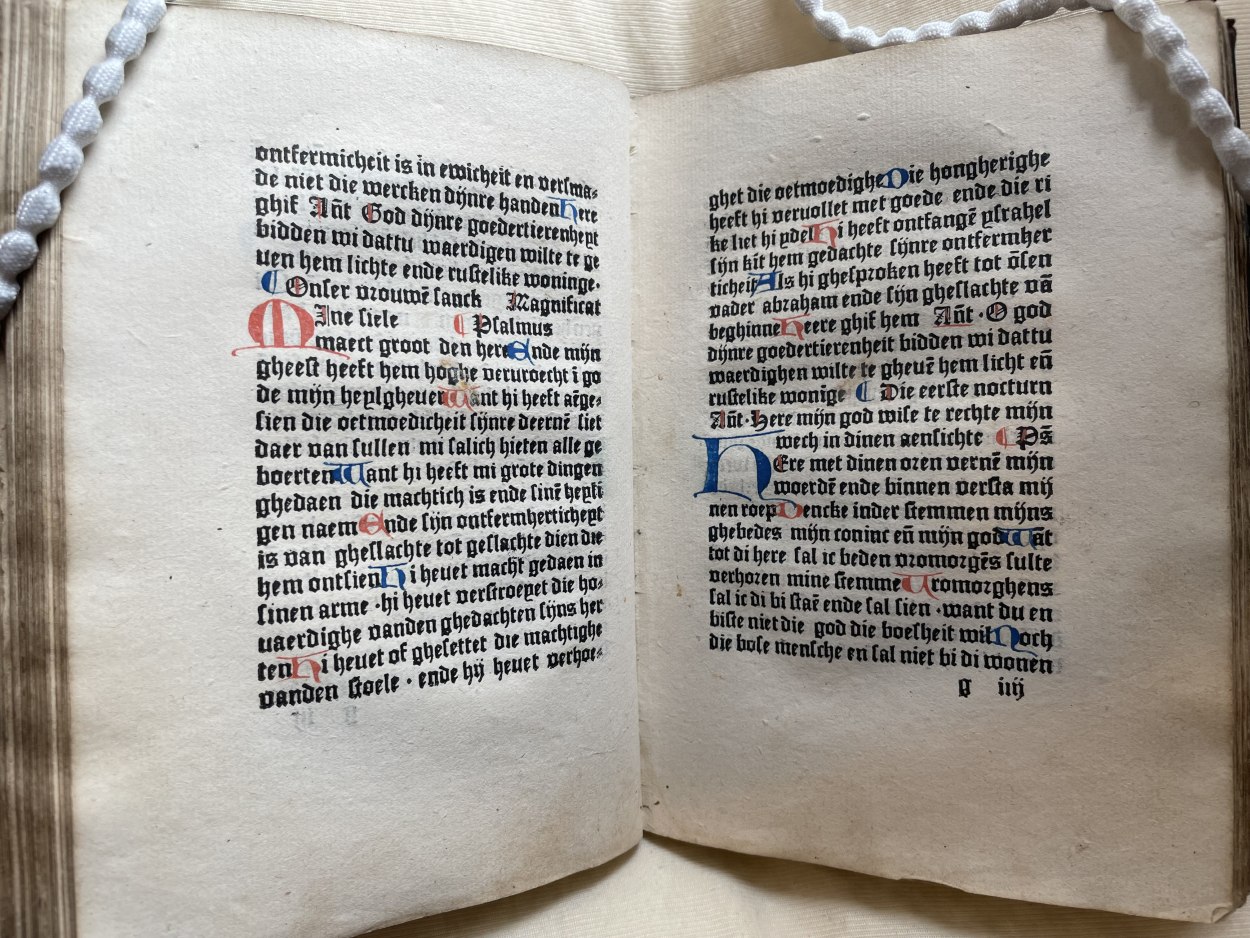 ontfermicheit is in ewicheit en versma⸗
de niet die wercken dijnre handen Here
ghif Añt God dijnre goedertierenheyt
bidden wi dattu waerdigen wilte te ge
uen hem lichte ende rustelike woninge·
⸿ Onser vrouwē sanck Magnificat
MIne siele ⸿ Psalmus
maect groot den here Ende mijn
gheest heeft hem hoghe veruroecht ī go
de mijn heylgheuer Want hi heeft aēge⸗
sien die oetmoedicheit sijnre deernē siet
daer van sullen mi salich hieten alle ge
boerten Want hi heeft mi grote dingen
ghedaen die machtich is ende sinē heyli
gen naem Ende sijn ontfermherticheyt
is van gheslachte tot geslachte dien die
hem ontsien Hi heuet macht gedaen in
sinen arme ·hi heuet verstroeyet die ho⸗
uaerdighe vanden ghedachten sijns her
ten Hi heuet of ghesettet die machtighe
vanden stoele · ende hij heuet verhoe⸗
ghet die oetmoedighe Die hongherighe
heeft hi veruollet met goede ende die ri
ke liet hi ydel Hi heeft ontfangē ysrahel
sijn kit hem gedachte sijnre ontfermher
ticheit Als hi ghesproken heeft tot ōsen
vader abraham ende sijn gheslachte vā
beghinne Heere ghif hem Añt · O god
dijnre goedertierenheit bidden wi dattu
waerdighen wilte te gheuē hem licht eñ
rustelike wonige ⸿ Die eerste nocturn
Añt · Here mijn god wise te rechte mijn
wech in dinen aensichte ⸿ Ps̄
HEre met dinen oren vernē mijn
woerdē ende binnen versta mij
nen roep Dencke inder stemmen mijns
ghebedes mijn coninc eñ mijn god Wāt
tot di here sal ic beden vromorgēs sulte
verhoren mine stemme Uromorghens
sal ic di bi staē ende sal sien ·want du en
biste niet die god die boesheit wil Noch
die bose mensche en sal niet bi di wonen
g iiij